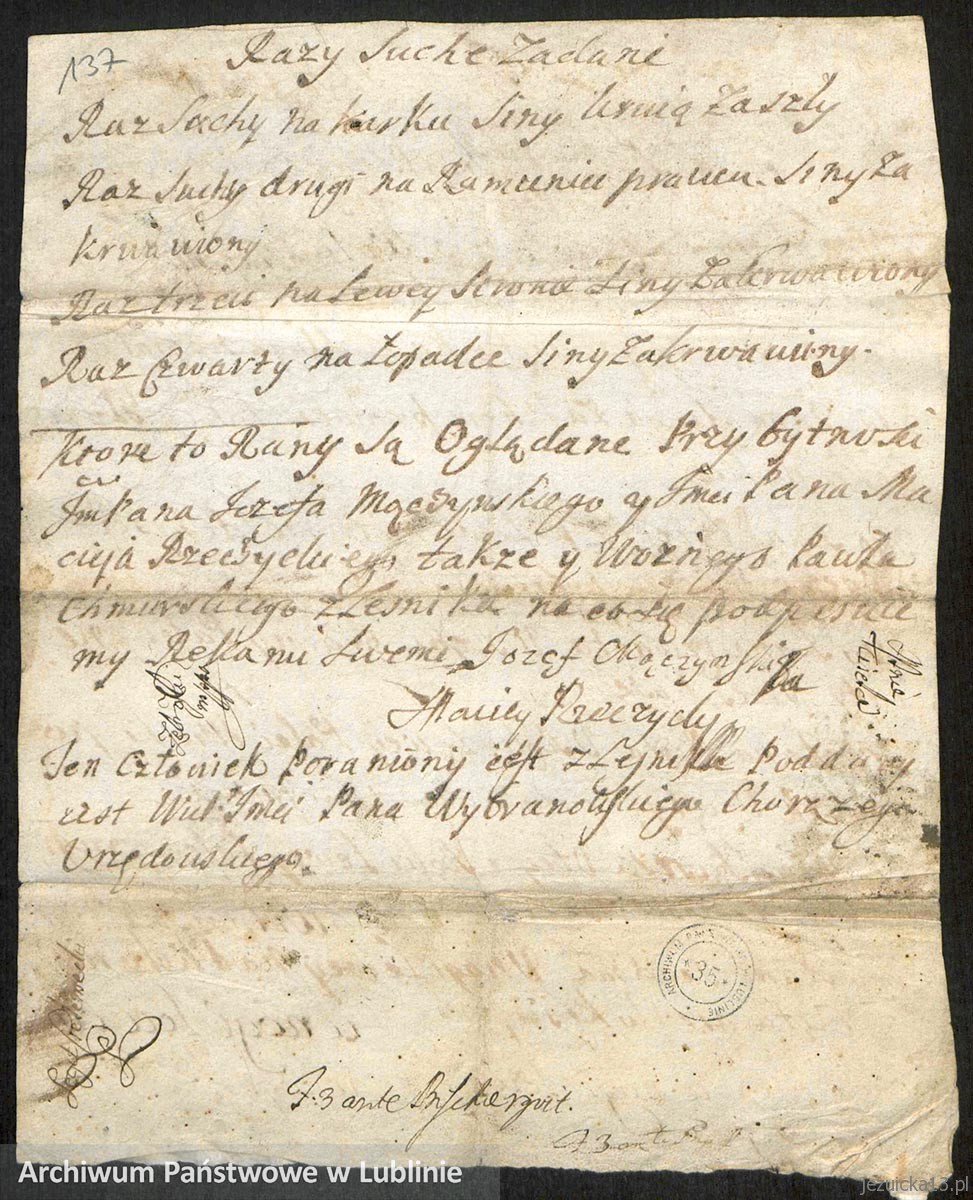 137
Razy Suche Zadane
Raz Suchy na karku Siny krwią Zaszły
Raz Suchy drugi na Ramieniu prawem. Siny Za
krwawiony
Raz trzeci na Lewey Stronie Siny Zakrwawiony
Raz Czwarty na Łopadce Siny Zakrwawiony.
Ktore to Rany są Oglądane Przy bytnosci
Jmci Pana Jozefa Mączynskiego y Jmci Pana Ma
cieja Rzeczyckiego także y Woznego Pawła
Chmurskiego z na co się podpisuie
my Rękami Swemi Jozef Mączynski
Maciey Rzeczycky
Ten Człowiek Poraniony iest z Poddany
iest Wiel Jmci Pana Wybranowskiego Chorążego
Urzędowskiego.
ARCHIWUM PAŃSTWOWE W LUBLINIE
35
F. 3 ante
Archiwum Państwowe w Lublinie
jezuicka13.pl